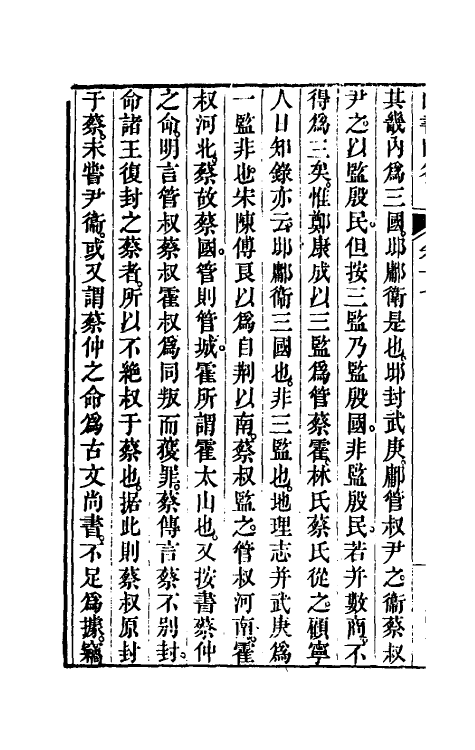 其畿內爲三國邶鄘衛是也邶封武庚鄘管叔尹之衛蔡叔
尹之以監殷民但按三監乃監殷國非監殷民若并數商不
得爲三矣惟鄭康成以三監爲管蔡霍林氏蔡氏從之顧寧
人日知錄亦云邶鄘衛三國也非三監也地理志并武庚爲
一監非也宋陳傅良以爲自荆以南蔡叔監之管叔河南霍
叔河北蔡故蔡國管則管城霍所謂霍太山也又按書蔡仲
之命明言管叔蔡叔霍叔爲同叛而獲罪蔡傳言蔡不別封
命諸王復封之蔡者所以不絶叔于蔡也据此則蔡叔原封
于蔡未嘗尹衞或又謂蔡仲之命爲古文尚書不足爲據竊